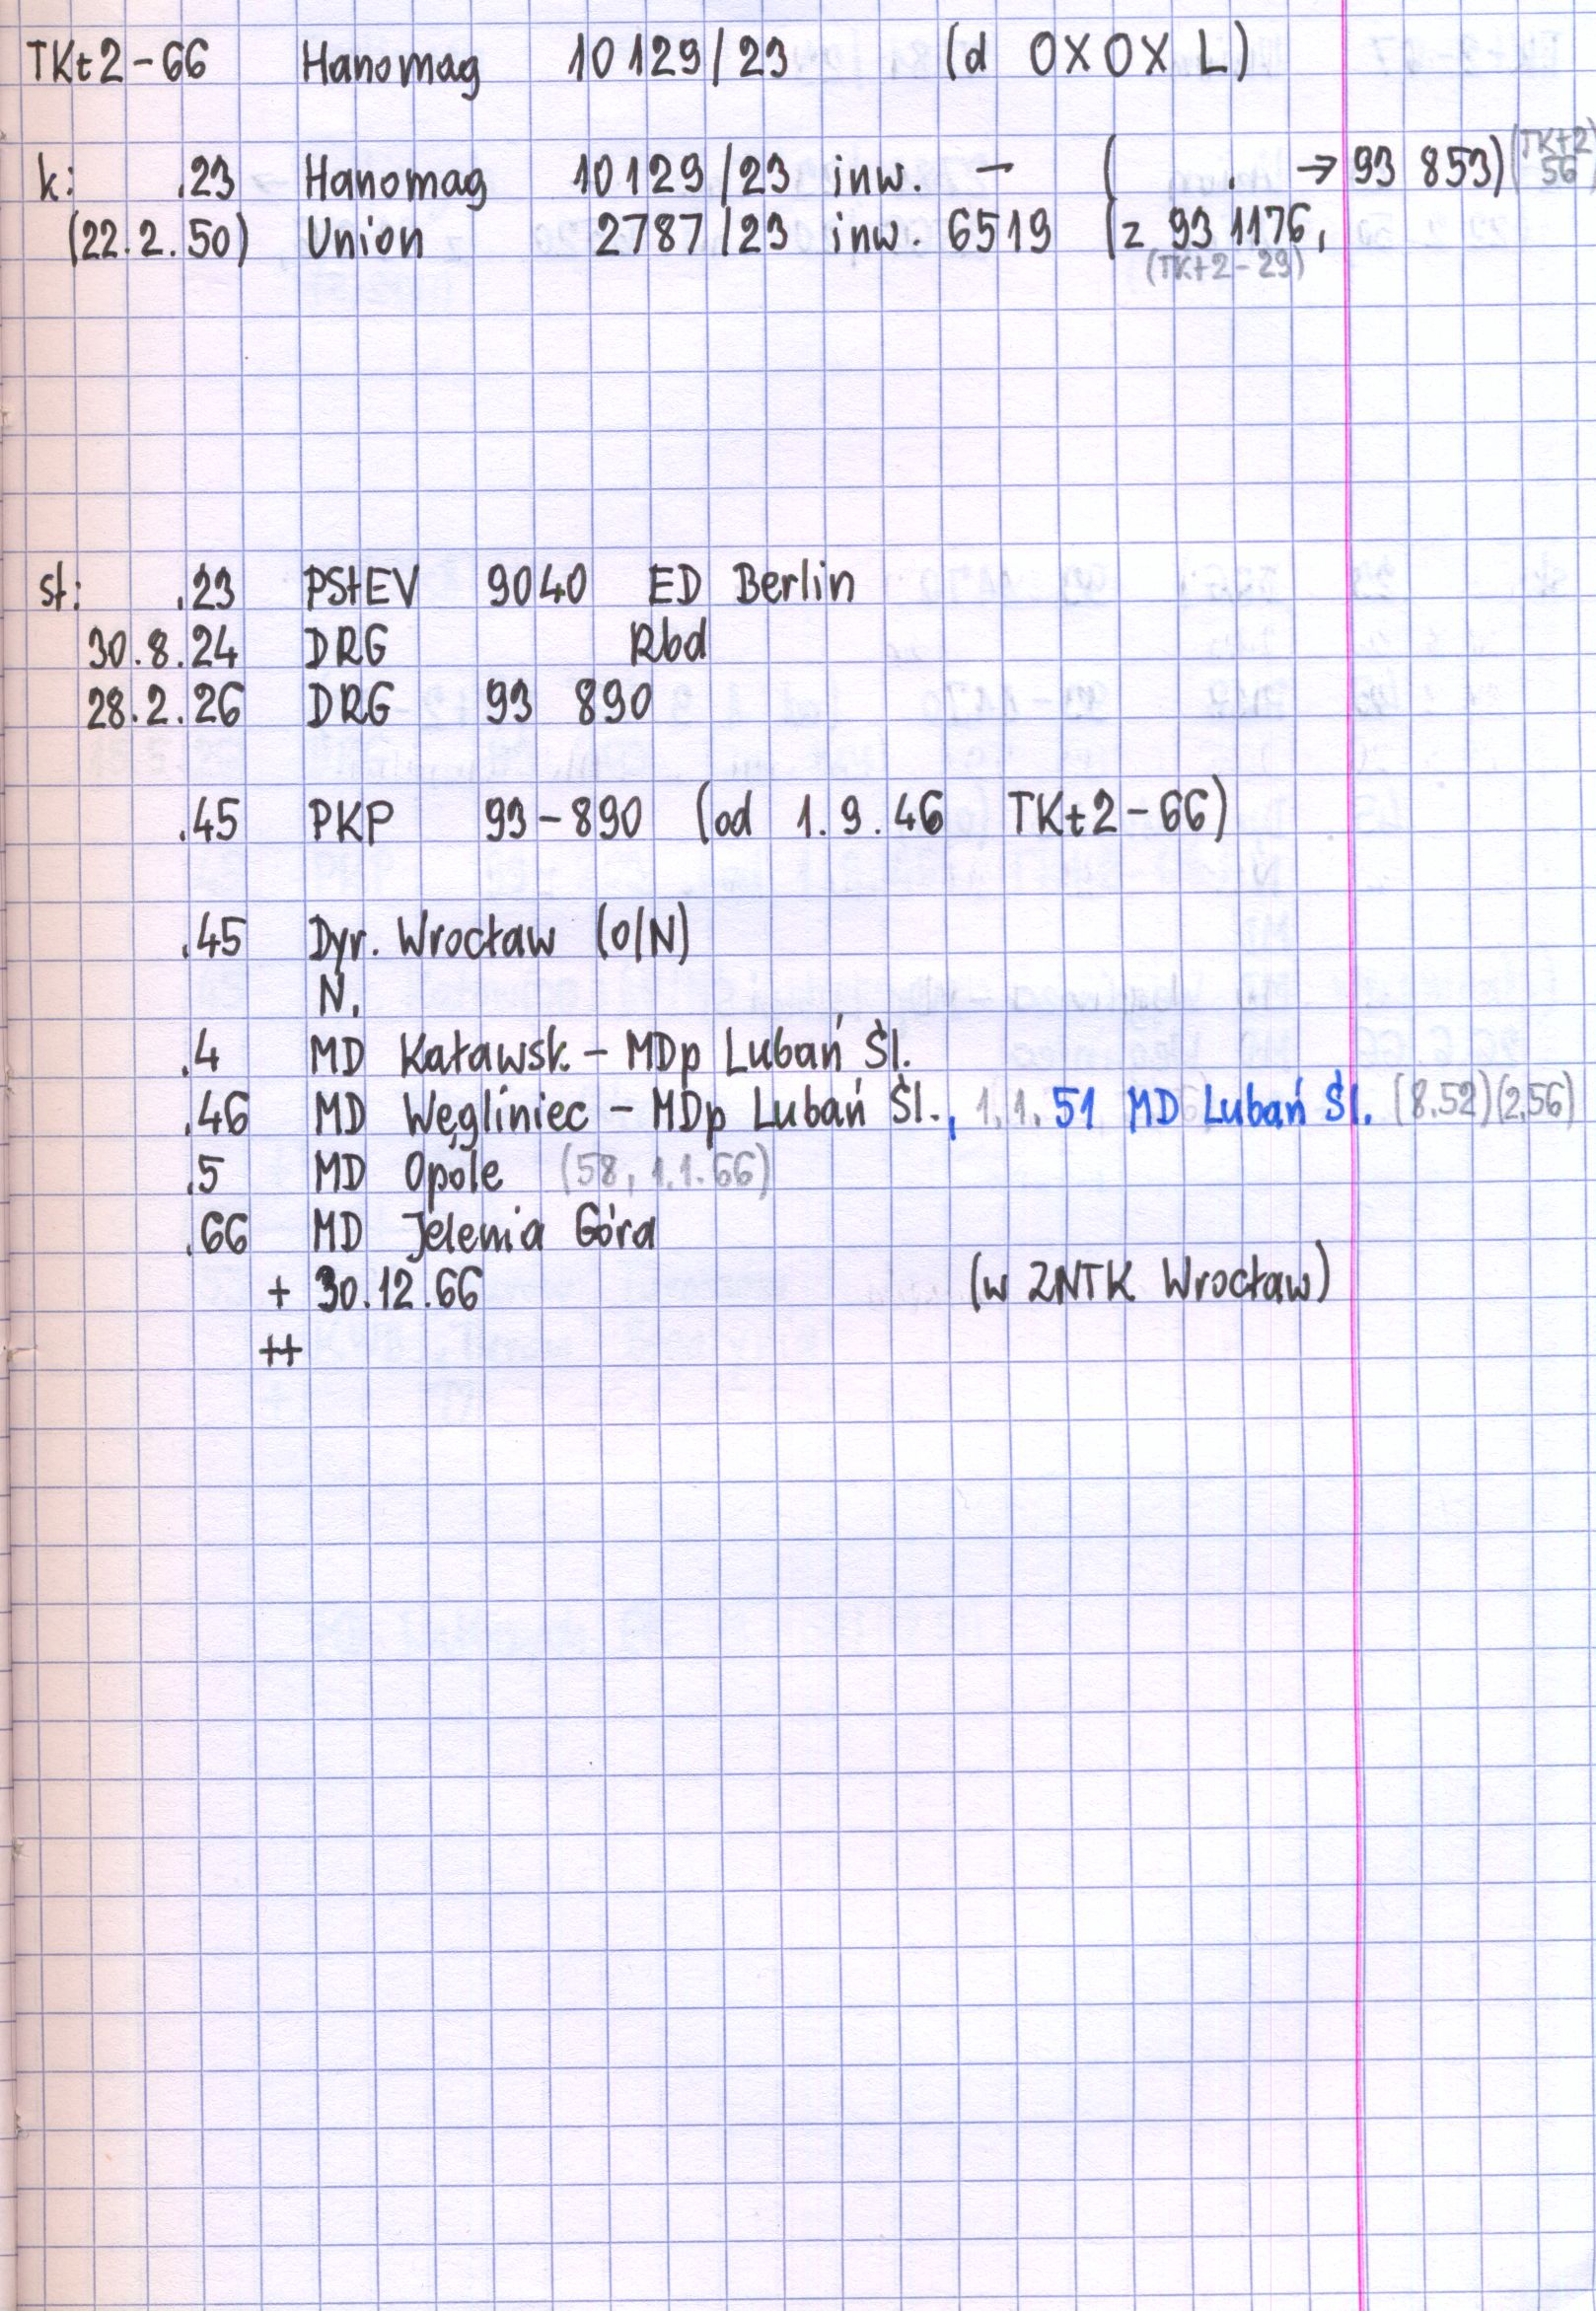 TKt2-66 Hanomag 10129/23 (d OXOX L)
k: .23 Hanomag 10129/23 inw. - ( . → 93 853) (TKt2 56)
(22.2.50) Union 2787/23 inw. 6519 (z 93 1176,
(TKt2-29)
st: .23 PStEV 9040 ED Berlin
30.8.24 DRG Rbd
28.2.26 DRG 93 890
.45 PKP 93-890 (od 1.9.46 TKt2-66)
.45 Dyr. Wrocław (O/N)
N.
.4 MD Kaławsk. - MDp Lubań Śl.
.46 MD Węgliniec - MDp Lubań Śl., 1.1.51 MD Lubań Śl. (8.52)(2.56)
.5 MD Opole (58, 1.1.66)
.66 MD Jelenia Góra
+ 30.12.66 (w ZNTK Wrocław)
++